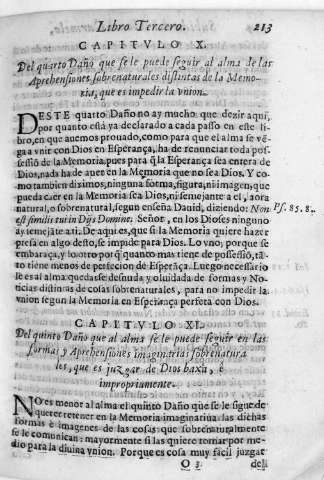 Libro Tercero. 213
CAPITVLO X.
Del quarto Daño que se le puede seguir al alma de las
Aprehensiones sobrenaturales distintas de la Memo-
ria, que es impedir la vnion.
DESTE quarto Daño no ay mucho que dezir aqui,
por quanto està ya declarado a cada passo en este li
bro, en que auemos prouado, como para que el alma se vē-
ga a vnir con Dios en Esperança, ha de renunciar toda pos
sessiõ de la Memoria, pues para q̃ la Esperança sea entera de
Dios, nada ha de auer en la Memoria que no sea Dios. Y co
mo tambien diximos, ninguna forma, figura, ni imagen, que
pueda caer en la Memoria sea Dios, ni semejante a el, aora
natural, o sobrenatural, segun enseña Dauid, diziendo: Non
est similis tui in Dijs Domine: Señor, en los Dioses ninguno
Ps. 85. 8.
ay semejāte a ti. De aqui es, que si la Memoria quiere hazer
presa en algo desto, se impide para Dios. Lo vno, porque se
embaraça, y lo otro porq̃ quanto mas tiene de possessiõ, tā-
to tiene menos de perfecion de Esperāça. Luego necessario
le es al alma quedarse desnuda y oluidada de formas y No-
ticias distintas de cosas sobrenaturales, para no impedir la
vnion segun la Memoria en Esperança perfeta con Dios.
CAPITVLO XI.
Del quinto Daño que al alma se le puede seguir en las
formas y Aprehensiones imaginarias sobrenatura
les, que es juzgar de Dios baxa, è
impropriamente.
NO es menor al alma el quinto Daño que se le sigue de
querer retener en la Memoria imaginatiua las dichas
formas è imagenes de las cosas que sobrenaturalmente
se le comunican: mayormente si las quiere tomar por me-
dio para la diuina vnion. Porque es cosa muy facil juzgar
O 3 deli